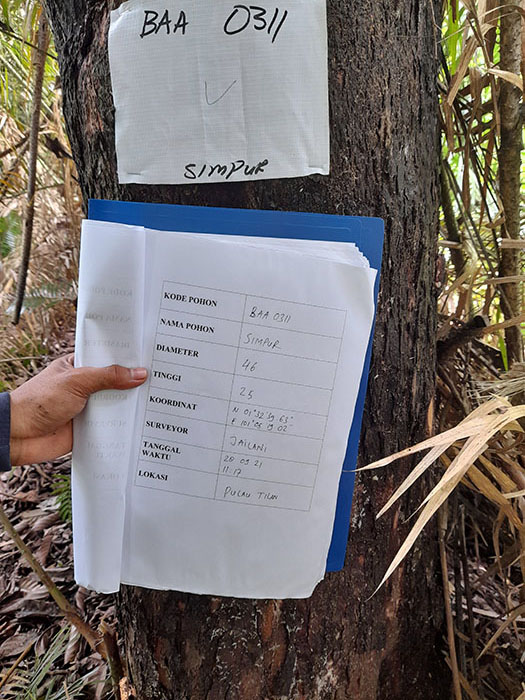 BAA 0311
SIMPUR
KODE POHON BAA 0311
NAMA POHON SIMPUR
DIAMETER 46
TINGGI 25
KOORDINAT N 01°32'19.63" E 101°06'19.02"
SURVEYOR JAILANI
TANGGAL 20 09 21
WAKTU 11:17
LOKASI PULAU TILAN